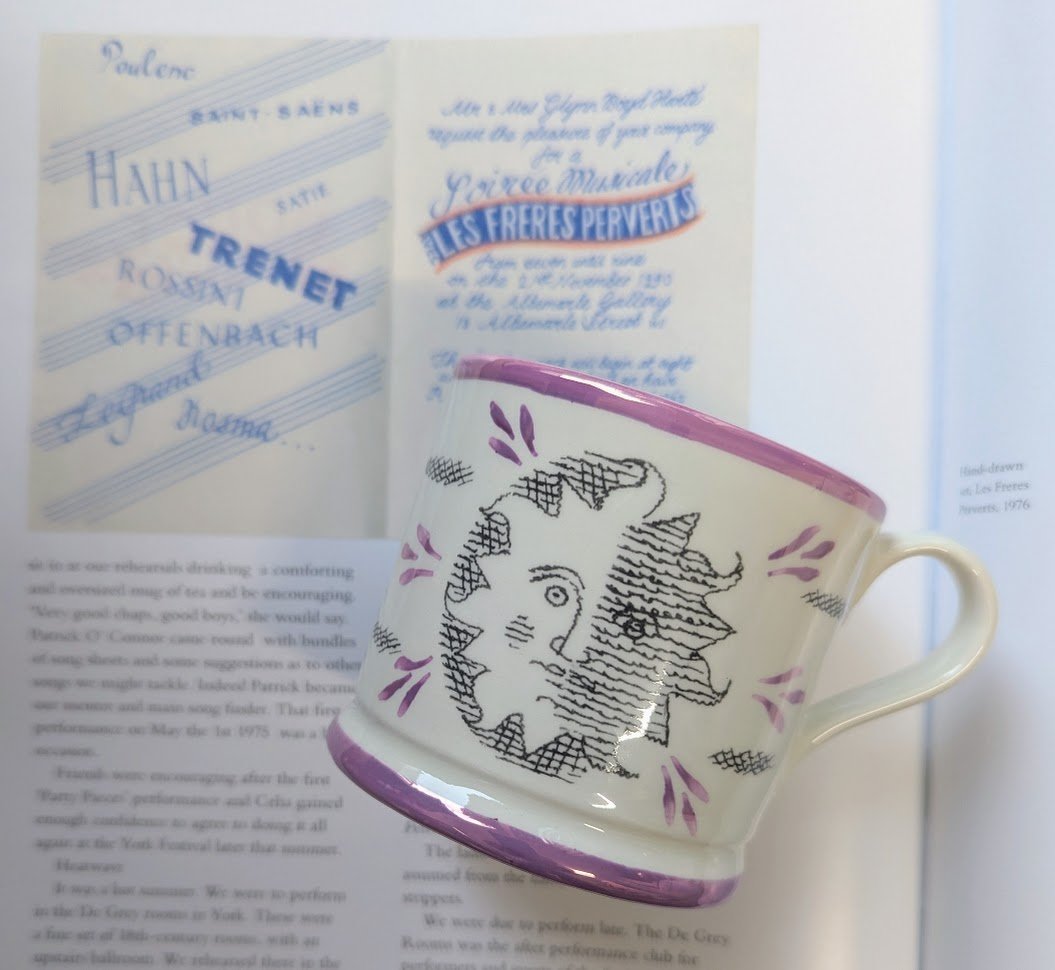 Poulenc
SAINT-SAËNS
HAHN
SATIE
TRENET
ROSSINI
OFFENBACH
Legrand
Kosma...
Mr & Mrs Glynn Boyd Harte
request the pleasure of your company
for a
Soirée Musicale
LES FRERES PERVERTS
from seven until nine
on the 21st November
at the Albemarle Gallery
Albemarle Street
will begin at eight
Hand-drawn
Les Freres
Perverts, 1976
sic to at our rehearsals drinking a comforting
and oversized mug of tea and be encouraging.
'Very good chaps, good boys,' she would say.
Patrick O' Connor came round with bundles
of song sheets and some suggestions as to other
songs we might tackle. Indeed Patrick became
our mentor and main song finder. That first
performance on May the 1st 1975 was a
occasion.
Friends were encouraging after the first
'Party Pieces' performance and Celia gained
enough confidence to agree to doing it all
again at the York Festival later that summer.
Heatwave
It was a hot summer. We were to perform
in the De Grey rooms in York. These were
a fine set of 18th-century rooms, with an
upstairs ballroom. We rehearsed there in the
The
assumed from the
strippers.
We were due to perform late. The De Grey
Rooms was the after performance club for
performers and guests of the